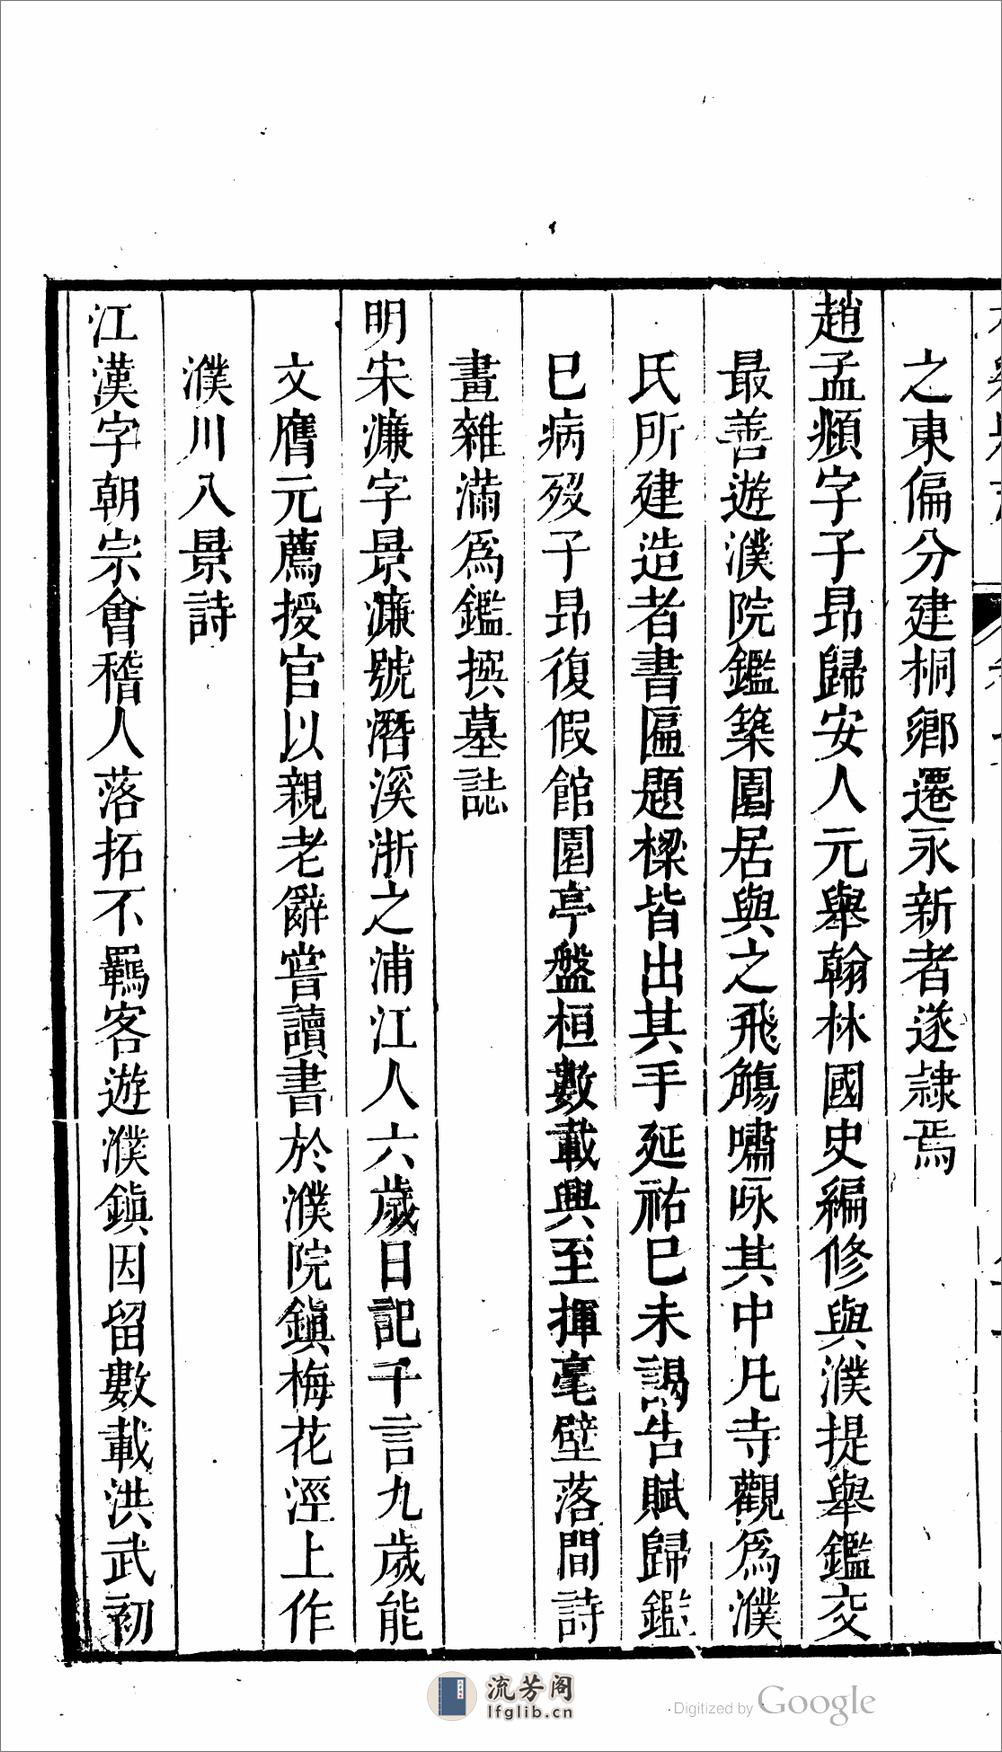 之東偏分建桐鄉遷永新者遂隷焉
趙孟頫字子昻歸安人元舉翰林國史編修與濮提舉鑑交
最善遊濮院鑑築園居與之飛觴嘯咏其中凡寺觀爲濮
氏所建造者書匾題樑皆出其手延祐巳未謁告賦歸鑑
巳病歿子昻復假館園亭盤桓數載興至揮毫壁落間詩
畫雜滿爲鑑撰墓誌
明宋濂字景濂號潛溪浙之浦江人六歲日記千言九歲能
文膺元薦授官以親老辭嘗讀書於濮院鎭梅花涇上作
濮川八景詩
江漢字朝宗會稽人落拓不羈客遊濮鎭因留數載洪武初
流芳阁
lfglib.cn
Digitized by Google